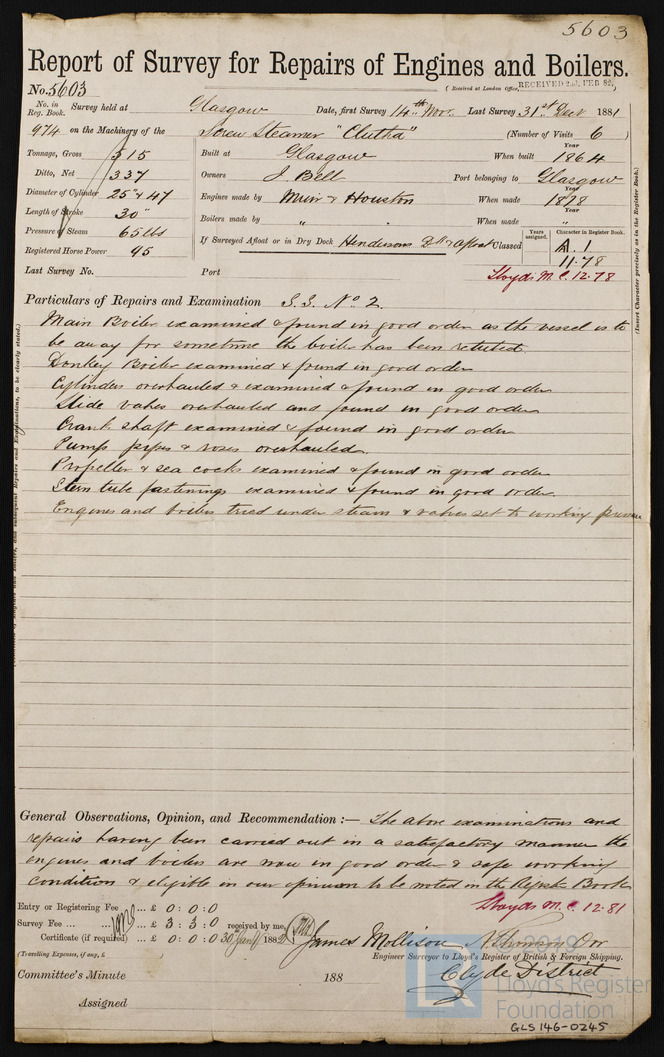 5603
Report of Survey for Repairs of Engines and Boilers.
No. 5603
(Received at London Office, RECEIVED 2nd FEB 82
No. in Reg. Book. Survey held at Glasgow Date, first Survey 14th Nov. Last Survey 31st Decr 1881
974 on the Machinery of the Screw Steamer "Clutha" (Number of Visits 6 )
Tonnage, Gross 515 Built at Glasgow When built Year 1864
Ditto, Net 337 Owners J. Bell Port belonging to Glasgow
Diameter of Cylinder 25" & 47 Engines made by Muir & Houston When made Year 1878
Length of Stroke 30" Boilers made by " When made "
Pressure of Steam 65 lbs If Surveyed Afloat or in Dry Dock Hendersons Dk & afloat Classed Years assigned. Character in Register Book. A. 1
Registered Horse Power 95 11.78
Last Survey No. Port Lloyds M.C. 12.78
(Insert Character precisely as in the Register Book.)
Particulars of Repairs and Examination S.S. No 2.
Main Boiler examined & found in good order as the vessel is to
be away for sometime the boiler has been retubed
Donkey Boiler examined & found in good order
Cylinders overhauled & examined & found in good order
Slide valves overhauled and found in good order
Crank shaft examined & found in good order
Pumps pipes & roses overhauled.
Propeller & sea cocks examined & found in good order
Stern tube fastenings examined & found in good order
Engines and boilers tried under steam & valves set to working pressure
General Observations, Opinion, and Recommendation :— The above examinations and
repairs having been carried out in a satisfactory manner the
engines and boilers are now in good order & safe working
condition & eligible in our opinion to be noted in the Regist. Book
Lloyds M.C. 12.81
Entry or Registering Fee ... £ 0 : 0 : 0
Survey Fee ... ... £ 3 : 3 : 0 received by me,
Certificate (if required) ... £ 0 : 0 : 0 30 Jany 1882
James Mollison
(Travelling Expenses, if any, £ )
Engineer Surveyor to Lloyd's Register of British & Foreign Shipping.
Committee's Minute 188
Clyde District
Assigned
© 2019
LR
Lloyd's Register
Foundation
GLS146-0245